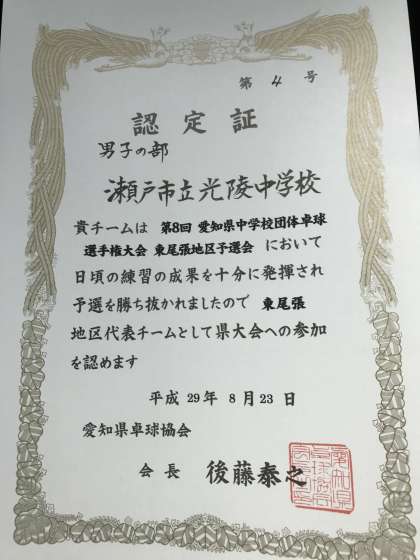 第4号
認定証
男子の部
瀬戸市立光陵中学校
貴チームは 第8回 愛知県中学校団体卓球
選手権大会 東尾張地区予選会 において
日頃の練習の成果を十分に発揮され
予選を勝ち抜かれましたので 東尾張
地区代表チームとして県大会への参加
を認めます
平成 29年 8月23日
愛知県卓球協会
会長 後藤泰之